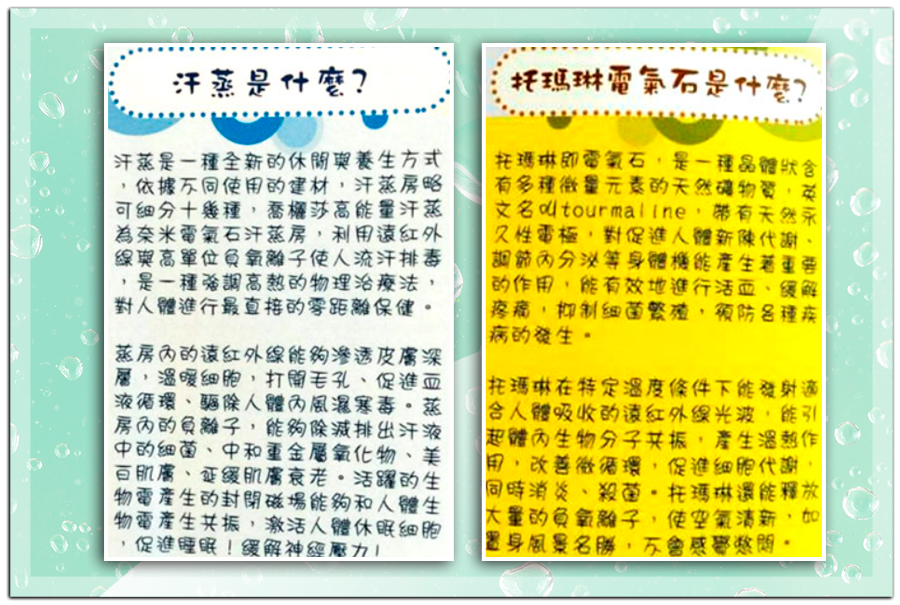 汗蒸是什麼?
汗蒸是一種全新的休閒與養生方式
，依據不同使用的建材，汗蒸房略
可細分十幾種，喬櫂莎高能量汗蒸
為奈米電氣石汗蒸房，利用遠紅外
線與高單位負氧離子使人流汗排毒
，是一種強調高熱的物理治療法，
對人體進行最直接的零距離保健。
蒸房內的遠紅外線能夠滲透皮膚深
層，溫暖細胞，打開毛孔、促進血
液循環、驅除人體內風濕寒毒。蒸
房內的負離子，能夠除滅排出汗液
中的細菌、中和重金屬氧化物、美
白肌膚、延緩肌膚衰老。活躍的生
物電產生的封閉磁場能夠和人體生
物電產生共振，激活人體休眠細胞
，促進睡眠！緩解神經壓力！
托瑪琳電氣石是什麼?
托瑪琳即電氣石，是一種晶體狀含
有多種微量元素的天然礦物質，英
文名叫tourmaline，帶有天然永
久性電極，對促進人體新陳代謝、
調節內分泌等身體機能產生著重要
的作用，能有效地進行活血、緩解
疼痛，抑制細菌繁殖，預防各種疾
病的發生。
托瑪琳在特定溫度條件下能發射適
合人體吸收的遠紅外線光波，能引
起體內生物分子共振，產生溫熱作
用，改善微循環，促進細胞代謝，
同時消炎、殺菌。托瑪琳還能釋放
大量的負氧離子，使空氣清新，如
置身風景名勝，不會感覺憋悶。